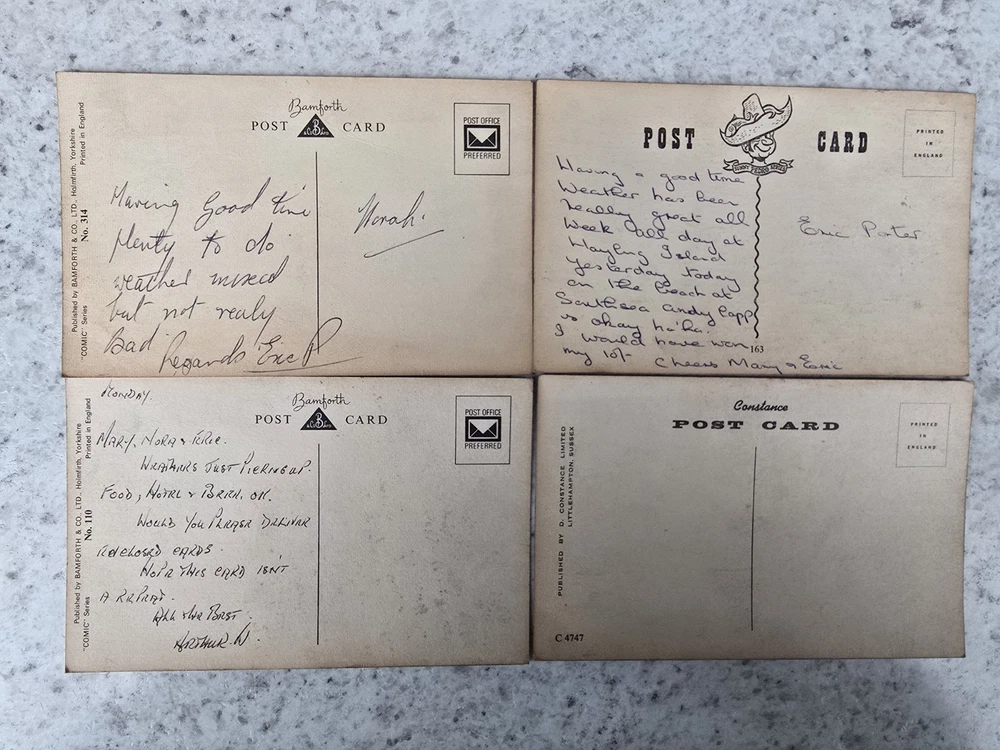 Published by BAMFORTH & CO., LTD., Holmfirth, Yorkshire
"COMIC" Series No. 314 Printed in England
Bamforth
POST CARD
B
POST OFFICE
PREFERRED
Having Good time
Plenty to do
weather mixed
but not realy
Bad
Regards Eric P
Norah.
POST CARD
SUNNY PEDRO SERIES
PRINTED
IN
ENGLAND
Having a good time
Weather has been
really great all
Week all day at
Hayling Island
yesterday today
on the beach at
Southsea andy Capp
is okay ha'ha.
I would have won
my 10/-
Cheers Mary & Eric
Eric Porter
163
Published by BAMFORTH & CO., LTD., Holmfirth, Yorkshire
"COMIC" Series No. 110 Printed in England
Bamforth
POST CARD
B
POST OFFICE
PREFERRED
MONDAY.
MARY, NORA & ERIC.
WEATHERS JUST PICKING UP.
FOOD, HOTEL & BEER, OK.
WOULD YOU PLEASE DELIVER
ENCLOSED CARDS.
HOPE THIS CARD ISN'T
A REPEAT.
ALL THE BEST.
ARTHUR. W.
Constance
POST CARD
PRINTED
IN
ENGLAND
PUBLISHED BY D. CONSTANCE LIMITED
LITTLEHAMPTON, SUSSEX
C 4747